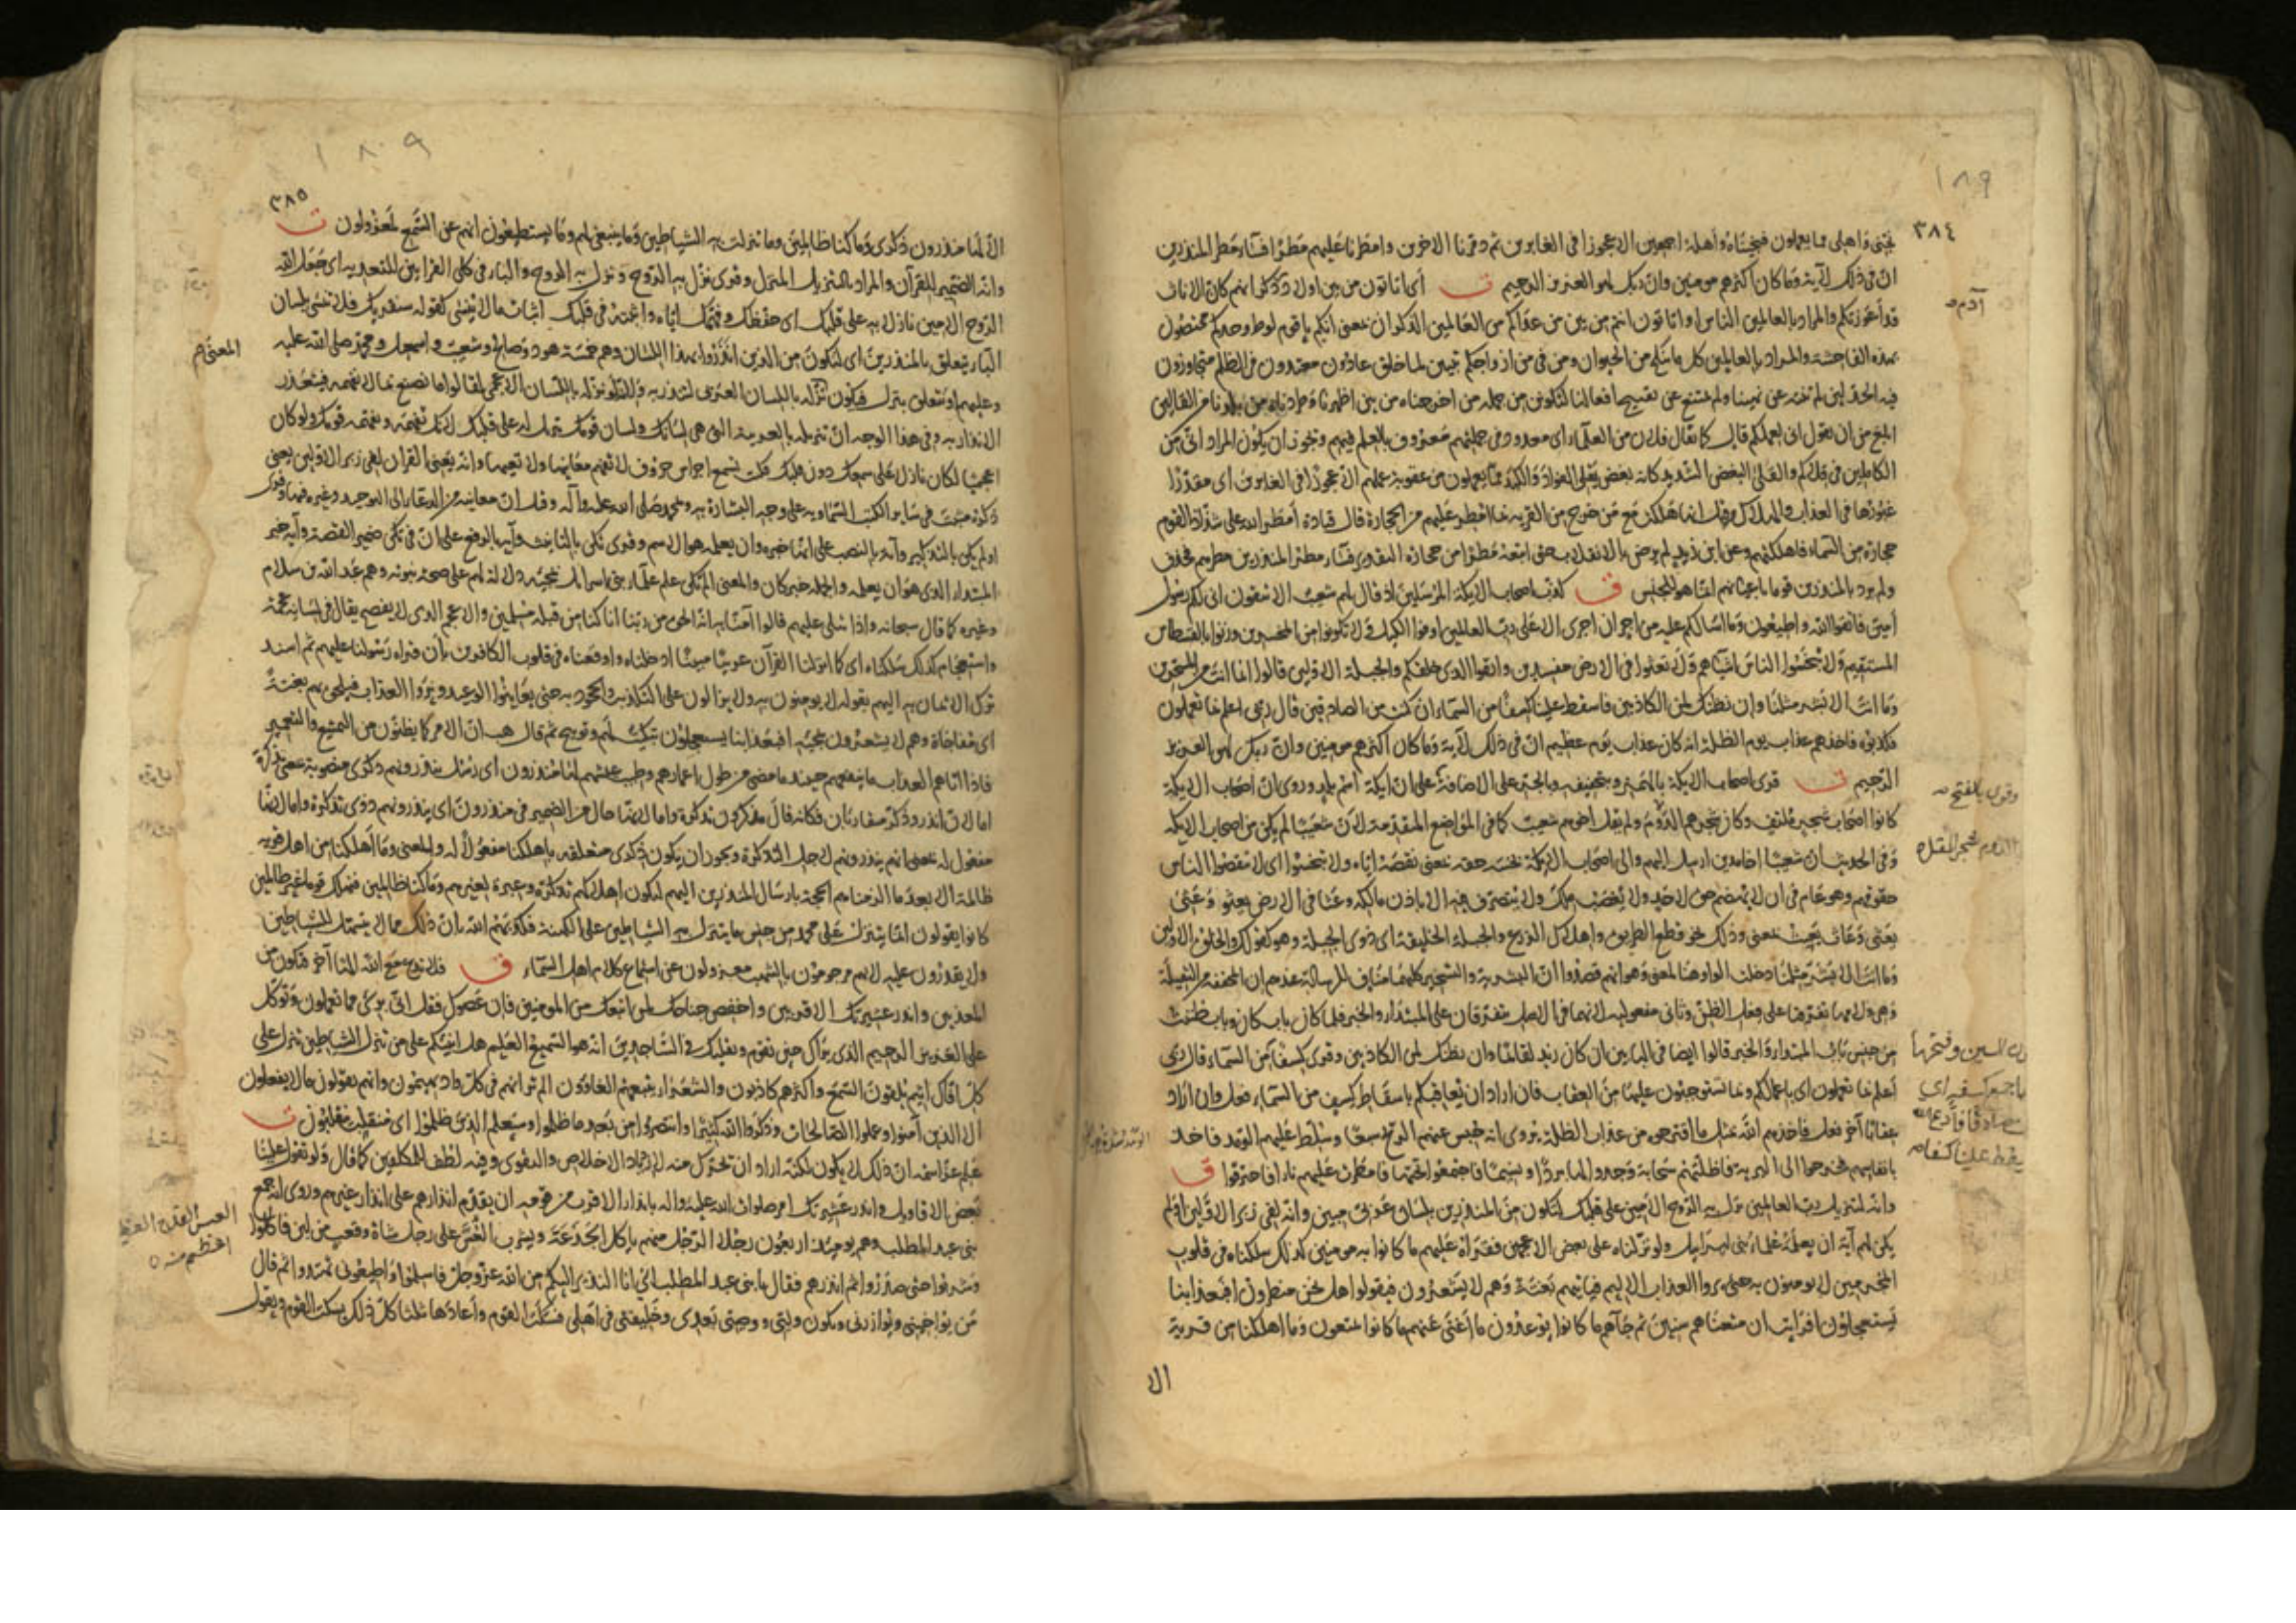 ١٨٩
٣٨٤
نجنى واهلى مما يعملون فنجيناه وأهله اجمعين الا عجوزا فى الغابرين ثم دمرنا الاخرين وامطرنا عليهم مطرا فساء مطر المنذرين
ان فى ذلك لآية وما كان اكثرهم مومنين وان ربك لهو العزيز الرحيم ت أى اتاتون من بين اولاد آدم ذكرانهم كان الاناث
قد أعوزتكم والمراد بالعالمين الناس او اتاتون انتم من بين من عداكم من العالمين الذكران يعنى انكم يا قوم لوط وحدكم مختصون
بهذه الفاحشة والمراد بالعالمين كل ما ينكح من الحيوان ومن فى من ازواجكم تبيين لما خلق عادون معتدون فى الظلم متجاوزون
فيه الحد لئن لم تنته عن نهينا ولم تمتنع عن تقبيح افعالنا لتكونن من جملة من اخرجناه من بين اظهرنا وطردناه من بلدنا من القالين
ابلغ من ان يقول انى لعملكم قال كما يقال فلان من العلماء اى معدود فى جملتهم معروف بالعلم فيهم ويجوز ان يكون المراد انى من
الكاملين فى قلاكم والقلى البغض الشديد كانه بغض يقلى الفؤاد والكبد مما يعملون من عقوبة عملهم الا عجوزا فى الغابرين اى مقدرا
غبورها فى العذاب والهلاك وقيل انها هلكت مع من خرج من القرية بما امطر عليهم من الحجارة قال قتادة أمطر الله على شذاذ القوم
حجارة من السماء فاهلكتهم وعن ابن زيد لم يرض بالانقلاب حتى اتبعه مطرا من حجارة التقدير فساء مطر المنذرين مطرهم فحذف
ولم يرد بالمنذرين قوما باعيانهم انما هو للجنس ق كذب اصحاب الايكة المرسلين اذ قال لهم شعيب الا تتقون انى لكم رسول
أمين فاتقوا الله واطيعون وما اسالكم عليه من اجر ان اجرى الا على رب العالمين اوفوا الكيل ولا تكونوا من المخسرين وزنوا بالقسطاس
المستقيم ولا تبخسوا الناس اشياءهم ولا تعثوا فى الارض مفسدين واتقوا الذى خلقكم والجبلة الاولين قالوا انما انت من المسحرين
وما انت الا بشر مثلنا وان نظنك لمن الكاذبين فاسقط علينا كسفا من السماء ان كنت من الصادقين قال ربى اعلم بما تعملون
فكذبوه فاخذهم عذاب يوم الظلة انه كان عذاب يوم عظيم ان فى ذلك لآية وما كان اكثرهم مومنين وان ربك لهو العزيز
الرحيم ت قرى اصحاب الايكة بالهمزة وبتخفيفه وبالجر على الاضافة على ان ايكة اسم بلد وروى ان اصحاب الايكة
كانوا اصحاب شجر ملتف وكان شجرهم الدوم ولم يقل اخوهم شعيب كما فى المواضع المتقدمة لان شعيبا لم يكن من اصحاب الايكة
وفى الحديث ان شعيبا اخا مدين ارسل اليهم والى اصحاب الايكة بخسته حقه يعنى نقصته اياه ولا تبخسوا اى لا تنقصوا الناس
حقوقهم وهو عام فى ان لا يهتضم حق لاحد ولا يغصب ملك ولا يتصرف فيه الا باذن مالكه وعثا فى الارض يعثو وعثى
يعثى وعاث يعيث يعنى وذلك نحو قطع الطريق واهلاك الزرع والجبلة الخليقة اى ذوى الجبلة وهو كقولك والخلق الاولين
وما انت الا بشر مثلنا دخلت الواو هنا لمعنى وهو انهم قصدوا ان البشرية والتسحير كليهما مناف للرسالة عندهم ان المخففة من الثقيلة
وهى ولامها تفرقتا على فعل الظن وثانى مفعوليه لانهما فى الاصل يتفرقان على المبتدا والخبر فلما كان باب كان وباب ظننت
من جنس باب المبتدا والخبر قالوا ايضا فى البابين ان كان زيد لقائما وان نظنك لمن الكاذبين وقرى كسفا من السماء قال ربى
أعلم بما تعملون اى باعمالكم وبما تستوجبون عليها من العقاب فان اراد ان يعاقبكم باسقاط كسف من السماء فعل وان اراد
عقابا آخر فعل فاخذهم الله بمثل ما اقترحوه من عذاب الظلة يروى انه حبس عنهم الريح سبعا وسلط عليهم الومد فاخذ
بانفاسهم فخرجوا الى البرية فاظلتهم سحابة وجدوا لها بردا ونسيما فاجتمعوا تحتها فامطرت عليهم نارا فاحترقوا ق
وانه لتنزيل رب العالمين نزل به الروح الامين على قلبك لتكون من المنذرين بلسان عربى مبين وانه لفى زبر الاولين او لم
يكن لهم آية ان يعلمه علماء بنى اسرائيل ولو نزلناه على بعض الاعجمين فقراه عليهم ما كانوا به مومنين كذلك سلكناه فى قلوب
المجرمين لا يومنون به حتى يروا العذاب الاليم فياتيهم بغتة وهم لا يشعرون فيقولوا هل نحن منظرون افبعذابنا
يستعجلون افرايت ان متعناهم سنين ثم جاءهم ما كانوا يوعدون ما اغنى عنهم ما كانوا يمتعون وما اهلكنا من قرية
الا
آدم
وقرى بالفتح
الدوم شجر المقل
السين وفتحها
١٨٠٩
٣٨٥
الا لها منذرون ذكرى وما كنا ظالمين وما تنزلت به الشياطين وما ينبغى لهم وما يستطيعون انهم عن السمع لمعزولون ت
وانه الضمير للقرآن والمراد بالتنزيل المنزل وقرى نزل به الروح ونزل به الروح والباء فى كلى القرايتين للتعدية اى جعل الله
الروح الامين نازلا به على قلبك اى حفظك وفهمك اياه واثبته فى قلبك اثبات ما لا ينسى كقوله سنقريك فلا تنسى بلسان
الباء يتعلق بالمنذرين اى لتكون من الذين انذروا بهذا اللسان وهم خمسة هود وصالح وشعيب واسمعيل ومحمد صلى الله عليه
وعليهم او يتعلق بنزل فيكون نزله باللسان العربى لتنذر به ولو نزله باللسان الاعجمى لقالوا ما نصنع بما لا نفهمه فيتعذر
الانذار به وفى هذا الوجه ان تنزيله بالعربية التى هى لسانك ولسان قومك تنزيل له على قلبك لانك تفهمه ويفهمه قومك ولو كان
اعجميا لكان نازلا على سمعك دون قلبك فكنت تسمع اجراس حروف لا تفهم معانيها ولا تعيها وانه يعنى القران لفى زبر الاولين يعنى
ذكره مثبت فى سائر الكتب السماوية على وجه البشارة به وبمحمد صلى الله عليه وآله وقيل ان معانيه من الدعاء الى التوحيد وغيره فيها وقرى
اولم يكن بالتذكير وآية بالنصب على انها خبره وان يعلمه هو الاسم وقرى تكن بالتانيث وآية بالرفع على ان فى تكن ضمير القصة وآية خبر
المبتدا الذى هو ان يعلمه والجملة خبر كان والمعنى اولم يكن علم علماء بنى اسرائيل بمجيئه دلالة لهم على صحة نبوته وهم عبد الله بن سلام
وغيره كما قال سبحانه واذا يتلى عليهم قالوا آمنا به انه الحق من ربنا انا كنا من قبله مسلمين والاعجم الذى لا يفصح يقال فى لسانه عجمة
واستعجام كذلك سلكناه اى كما انزلنا القرآن عربيا مبينا ادخلناه واوقعناه فى قلوب الكافرين بأن قراه رسولنا عليهم ثم اسند
ترك الايمان به اليهم بقوله لا يومنون به ولا يزالون على التكذيب والجحود به حتى يعاينوا الوعيد ويروا العذاب فيلحق بهم بغتة
اى مفاجاة وهم لا يشعرون بمجيئه افبعذابنا يستعجلون تبكيت لهم وتوبيخ ثم قال هب ان الامر كما يظنون من التمتيع والتعمير
فاذا اتاهم العذاب ما ينفعهم حينئذ ما مضى من طول اعمارهم وطيب عيشهم لها منذرون اى رسل ينذرونهم ذكرى منصوبة بمعنى تذكرة
اما لان انذر وذكر متقاربان فكانه قال مذكرون تذكرة واما لانها حال من الضمير فى منذرون اى ينذرونهم ذوى تذكرة واما لانها
مفعول له بمعنى انهم ينذرونهم لاجل التذكرة ويجوز ان يكون ذكرى متعلقه باهلكنا مفعولا له والمعنى وما أهلكنا من اهل قرية
ظالمة الا بعد ما الزمناهم الحجة بارسال المنذرين اليهم لتكون اهلاكهم تذكرة وعبرة لغيرهم وما كنا ظالمين فنهلك قوما غير ظالمين
كانوا يقولون انما يتنزل على محمد من جنس ما يتنزل به الشياطين على الكهنة فكذبهم الله بان ذلك مما لا يتسهل للشياطين
ولا يقدرون عليه لانهم مرجومون بالشهب معزولون عن استماع كلام اهل السماء ق فلا تدع مع الله الها آخر فتكون من
المعذبين وانذر عشيرتك الاقربين واخفض جناحك لمن اتبعك من المومنين فان عصوك فقل انى برئ مما تعملون وتوكل
على العزيز الرحيم الذى يراك حين تقوم وتقلبك فى الساجدين انه هو السميع العليم هل انبئكم على من تنزل الشياطين تنزل على
كل افاك اثيم يلقون السمع واكثرهم كاذبون والشعراء يتبعهم الغاوون الم تر انهم فى كل واد يهيمون وانهم يقولون ما لا يفعلون
الا الذين آمنوا وعملوا الصالحات وذكروا الله كثيرا وانتصروا من بعد ما ظلموا وسيعلم الذين ظلموا اى منقلب ينقلبون ت
علم عز اسمه ان ذلك لا يكون لكنه اراد ان يحرك منه لازدياد الاخلاص والتقوى وفيه لطف للمكلفين كما قال ولو تقول علينا
بعض الاقاويل وانذر عشيرتك امر صلوات الله عليه واله بانذار الاقرب من قومه ان يقدم انذارهم على انذار غيرهم وروى انه جمع
بنى عبد المطلب وهم يومئذ اربعون رجلا الرجل منهم ياكل الجذعة ويشرب العس على رجل شاة وقعب من لبن فاكلوا
وشربوا حتى صدروا ثم انذرهم فقال يا بنى عبد المطلب انى انا النذير اليكم من الله عز وجل فاسلموا واطيعونى تهتدوا ثم قال
من يواخينى ويوازرنى ويكون وليى ووصيى بعدى وخليفتى فى اهلى فسكت القوم وأعادها ثلثا كل ذلك يسكت القوم ويقول
المعنى هم
العس القدح العظيم